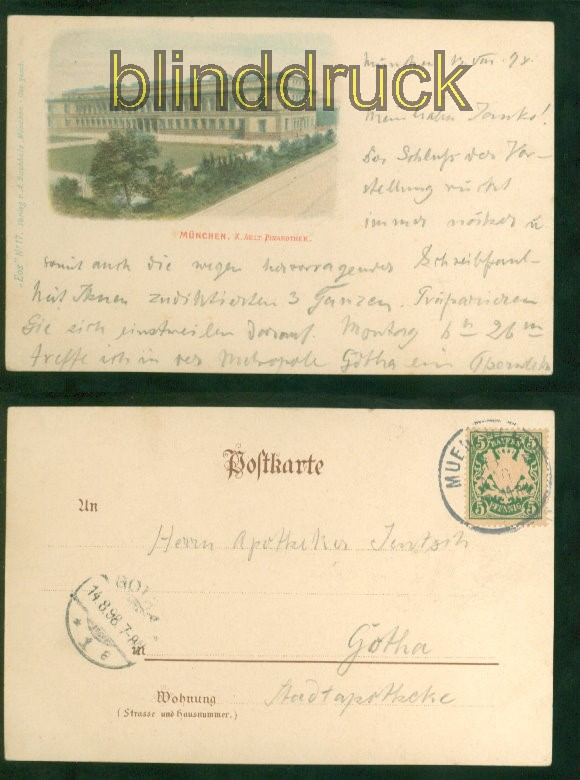 blinddruck
München 13 VIII 98.
Mein lieber Jentsch!
Der Schluß der Vor-
stellung rückt
immer näher u
somit auch die wegen hervorragender Schreibfaul-
heit Ihnen zudiktierten 3 Ganzen. Präparieren
Sie sich einstweilen darauf. Montag 6 h 26 m
treffe ich in der Metropole Gotha ein
MÜNCHEN. K. AELT. PINAKOTHEK.
"Eos" No 17. Verlag München
Postkarte
5 BAYERN 5
5 PFENNIG 5
MUE
An
Herrn Apotheker Jentsch
GOT
14.8.98. 7-8
* 1 e
in
Gotha
Wohnung
(Strasse und Hausnummer.)
Stadtapotheke